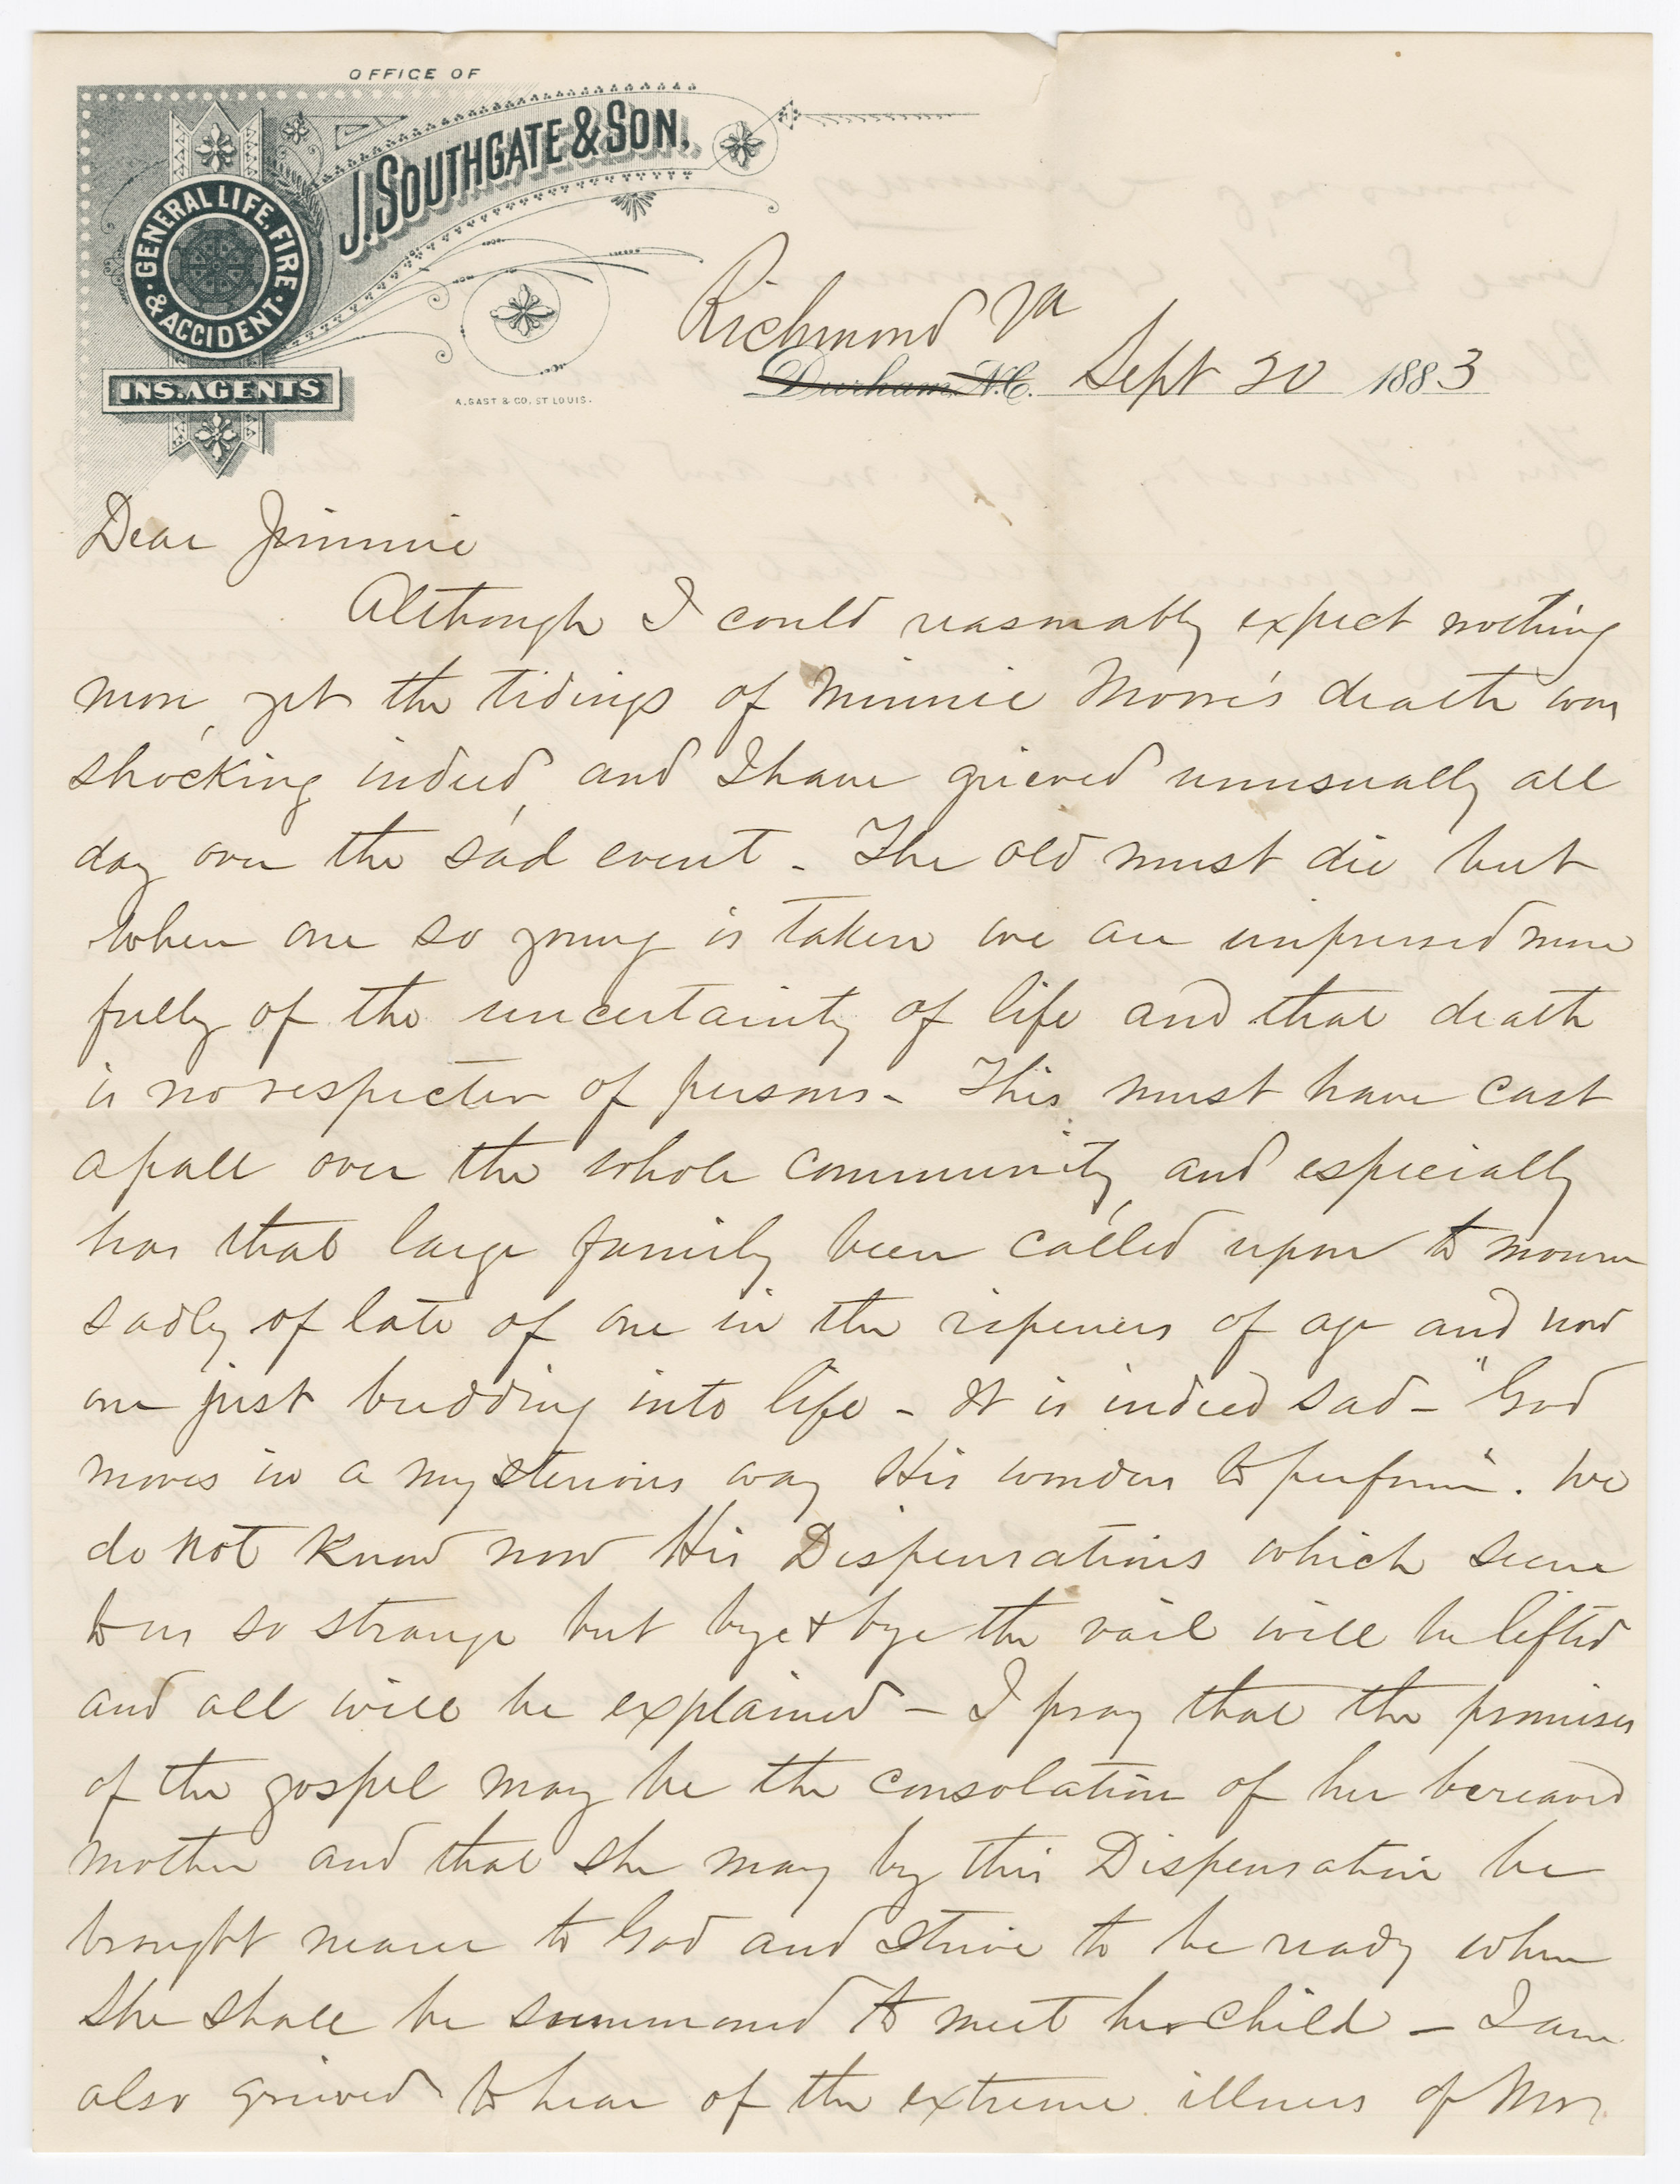 OFFICE OF
J. SOUTHGATE & SON,
GENERAL LIFE, FIRE & ACCIDENT
INS. AGENTS
A. GAST & CO. ST LOUIS.
Richmond Va
Durham, N.C. Sept 20 1883
Dear Jimmie
Although I could reasonably expect nothing
more, yet the tidings of Minnie Morris's death was
shocking indeed, and I have grieved unusually all
day over the sad event - The old must die but
when one so young is taken we are impressed more
fully of the uncertainty of life and that death
is no respecter of persons - This must have cast
a pall over the whole community, and especially
has that large family been called upon to mourn
sadly of late of one in the ripeness of age and now
one just budding into life - It is indeed sad - "God
moves in a mysterious way His wonders to perform". We
do not know now His Dispensations which seem
to us so strange but bye & bye the vail will be lifted
and all will be explained - I pray that the promises
of the gospel may be the consolation of her bereaved
mother and that she may by this Dispensation be
brought nearer to God and strive to be ready when
she shall be summoned to meet her child - I am
also grieved to hear of the extreme illness of Mrs.